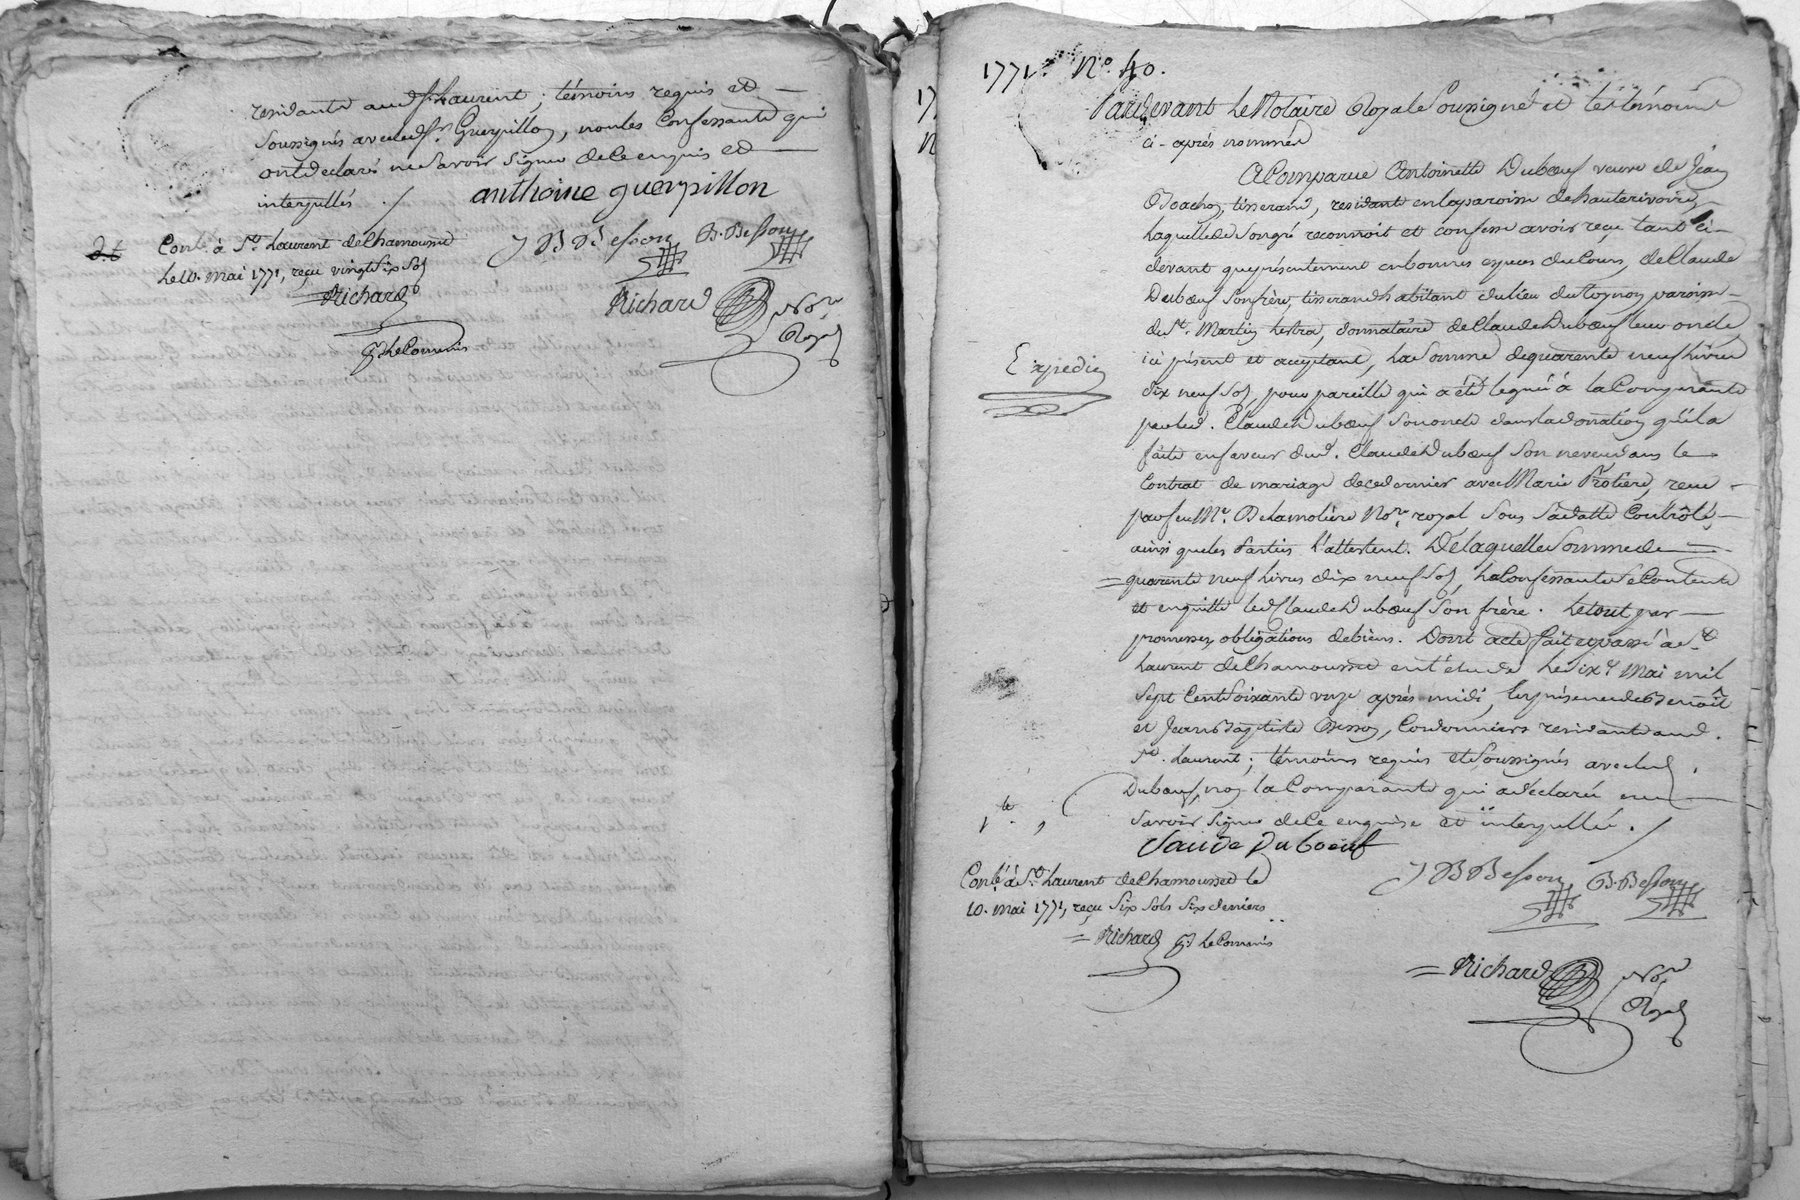 residants aud. St. Laurent; témoins requis et
soussignés avec led. Sr. Guerpillon, non les Confessants qui
ont déclarés ne savoir signer de ce enquis et
interpellés ./
anthoine guerpillon
J B Besson B. Besson
Conlé. à St. Laurent de Chamousset
le 10. mai 1771, reçu vingt six sols
Richard
Richard Nore. Royal
pr. le Commis
1771. No. 40.
Pardevant Le Notaire Royal Soussigné et les témoins
ci-après nommés
A Comparue Antoinette Dubœuf veuve de Jean
tisserand, residante en la paroisse de hauterivoire,
Laquelle de son gré reconnoit et confesse avoir reçu tant ci-
devant que présentement en bonnes espèces du Cours, de Claude
Dubœuf son frère, tisserand habitant du lieu du paroisse
de St. Martin Lestra, donnataire de Claude Dubœuf leur oncle
ici présent et acceptant, la somme de quarante neuf livres
dix neuf sols, pour pareille qui a été leguée à la Comparante
par led. Claude Dubœuf son oncle dans la donation qu'il a
faite en faveur dud. Claude Dubœuf son neveu dans le
Contrat de mariage de ce dernier avec Marie Protière, reçu
par feu Me. Delamolière Nore. royal sous sa datte Contrôlé,
ainsi que les Parties l'attestent. De laquelle somme de
Expedié
quarante neuf livres dix neuf sols, la Confessante se Contente
et en quitte led. Claude Dubœuf son frère. Le tout par
promesses, obligations de biens. Dont acte fait et passé à St.
Laurent de Chamousset en l'étude le dix Mai mil
sept Cent soixante onze après midi, En présence de Benoît
et Jean Baptiste Besson, Cordonniers residants aud.
St. Laurent; témoins requis et soussignés avec led.
Dubœuf, non la Comparante qui a déclaré ne
savoir signer de ce enquise et interpellée. /
Claude Duboeuf
J B Besson B. Besson
Conlé. à St. Laurent de Chamousset le
10. mai 1771, reçu Six Sols Six deniers
Richard pr. le Commis
Richard Nore. Royal